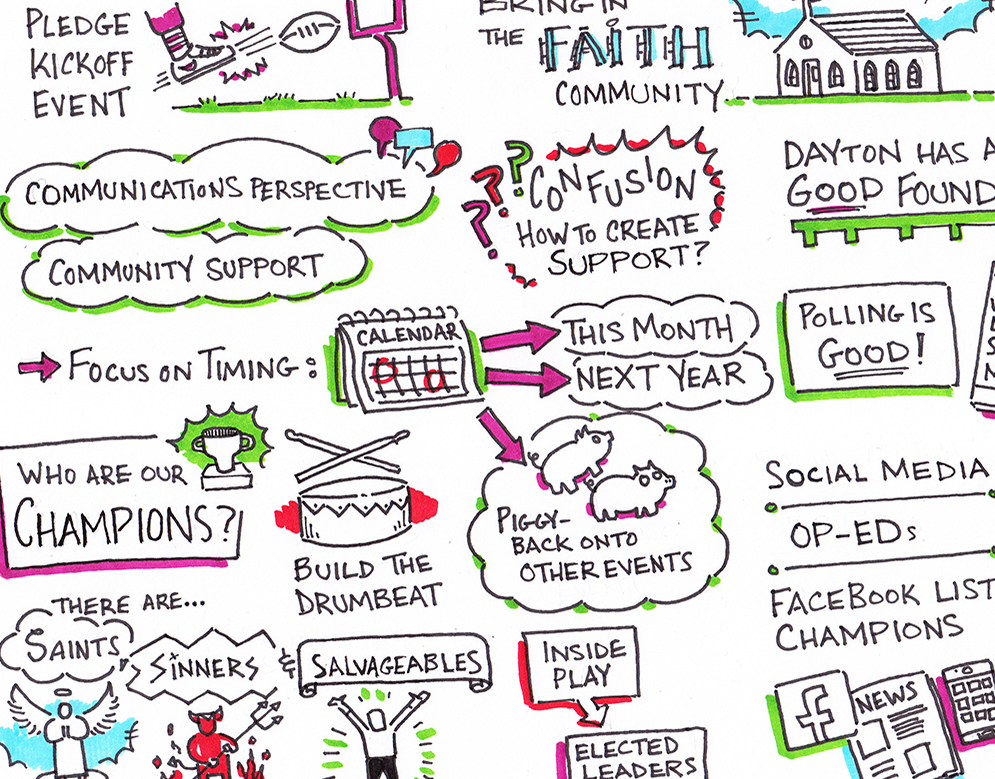 PLEDGE
KICKOFF
EVENT
BRING IN
THE FAITH
COMMUNITY
COMMUNICATIONS PERSPECTIVE
COMMUNITY SUPPORT
CONFUSION
HOW TO CREATE
SUPPORT?
DAYTON HAS A
GOOD FOUND
FOCUS ON TIMING:
CALENDAR
THIS MONTH
NEXT YEAR
POLLING IS
GOOD!
WHO ARE OUR
CHAMPIONS?
BUILD THE
DRUMBEAT
PIGGY-
BACK ONTO
OTHER EVENTS
SOCIAL MEDIA
OP-EDs
FACEBOOK LIST
CHAMPIONS
THERE ARE...
SAINTS
SINNERS
&
SALVAGEABLES
INSIDE
PLAY
ELECTED
LEADERS
f
NEWS